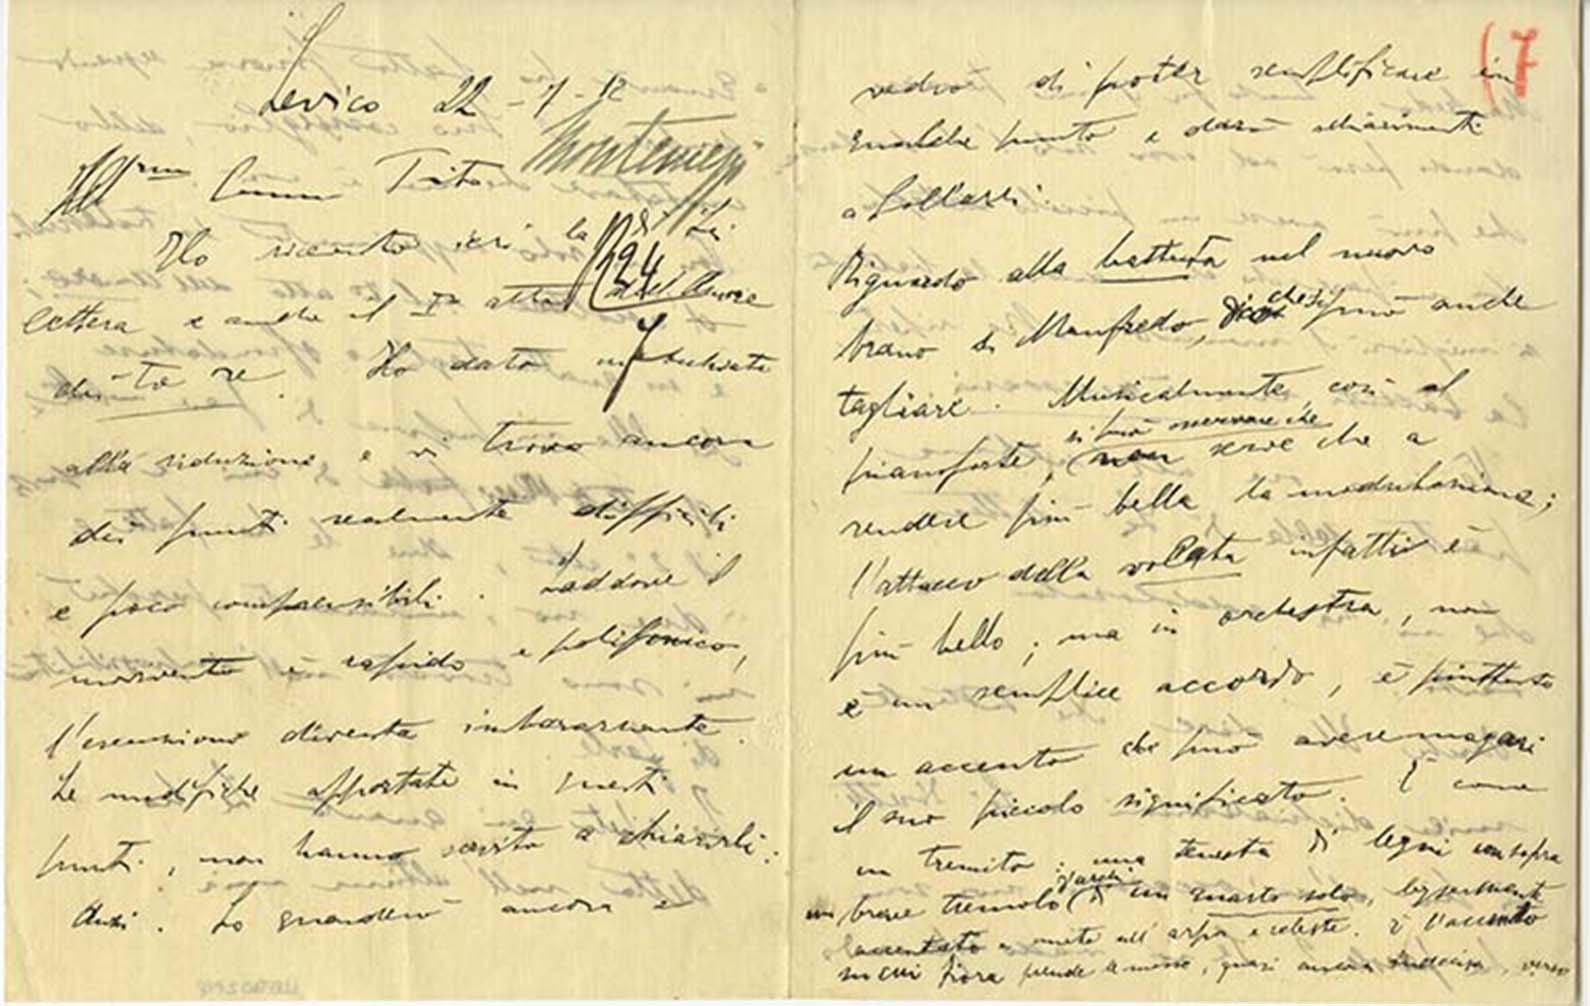 Levico 22-7-12
Montemezzi
Ill.mo Comm Tito
Ho ricevuto ieri la di Lei
R24
lettera e anche il Iº atto dell'Amore
dei tre re. Ho dato un'occhiata
alla riduzione e vi trovo ancora
dei punti realmente difficili
e poco comprensibili. Laddove il
movimento è rapido e polifonico,
l'esecuzione diventa imbarazzante.
Le modifiche apportate in questi
punti, non hanno servito a chiarirli:
Anzi. Lo guarderò ancora e
(7
vedrò di poter semplificare in
qualche punto e darò schiarimenti
a
Riguardo alla battuta nel nuovo
brano di Manfredo, che si può anche
tagliare. Musicalmente, così al
pianoforte, si può osservare che
non serve che a
rendere più bella la modulazione;
l'attacco della volata infatti è
più bello; ma in orchestra, non
è un semplice accordo, è piuttosto
un accento che può avere magari
il suo piccolo significato. È come
un tremito; una tenuta di legni con sopra
un breve tremolo d'archi di un quarto solo, leggermente
accentato e unito all'arpa e celeste. È l'accento
in cui Fiora prende a muove, quasi ancora indecisa, verso